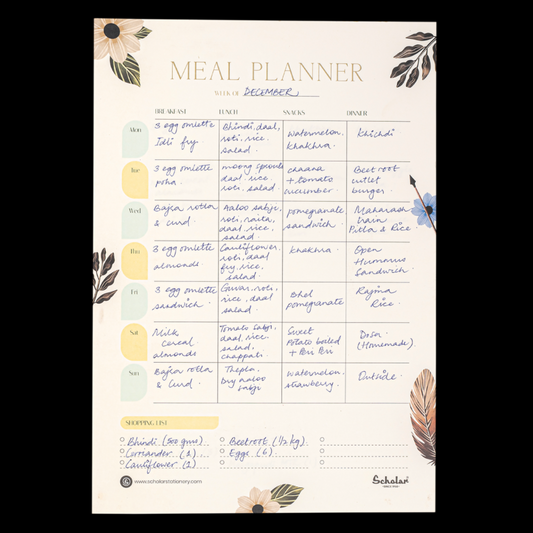 MEAL PLANNER
WEEK OF DECEMBER
BREAKFAST LUNCH SNACKS DINNER
Mon
3 egg omlette
Idli fry.
Bhindi, daal,
roti, rice,
salad.
watermelon.
khakhra.
khichdi
Tue
3 egg omlette
poha.
moong sprouts
daal, rice,
roti, salad.
chaana
+ tomato
cucumber.
Beetroot
cutlet
burger.
Wed
Bajra rotla
& curd.
Aaloo sabji,
roti, raita,
daal, rice,
salad.
pomegranate
sandwich.
Maharash
train
Pitla & Rice.
Thu
3 egg omlette
almonds.
Cauliflower,
roti, daal
fry, rice,
salad.
khakhra.
Open
Hummus
Sandwich.
Fri
3 egg omlette
sandwich.
Gavar, roti,
rice, daal
salad.
Bhel
pomegranate
Rajma
Rice.
Sat
Milk
cereal.
almonds
Tomato sabji,
daal, rice,
salad,
chappati.
Sweet
Potato boiled
+ Peri Peri
Dosa.
(Homemade).
Sun
Bajra rotla
& curd.
Thepla.
Dry aaloo
sabji
watermelon.
strawberry.
Outside.
SHOPPING LIST
Bhindi. (500 gms).
Corriander (1)
Cauliflower (1)
Beetroot (1/2 kg).
Eggs (6).
www.scholarstationery.com
Scholar